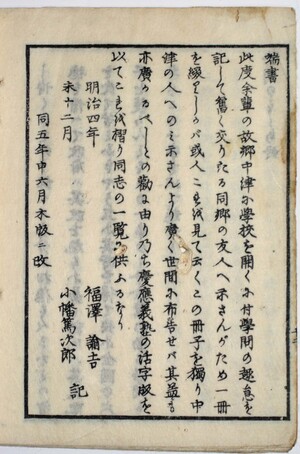 端書
此度余輩の故郷中津に学校を開くに付学問の趣意を
記して舊く交りたる同郷の友人へ示さんがため一冊
を綴りしかバ或人これを見て云くこの冊子を獨り中
津の人へのミ示さんより廣く世間に布告せバ其益も
亦廣かるべしとの勸に由り乃ち慶應義塾の活字版を
以てこれを摺り同志の一覧に供ふるなり
明治四年
未十二月
福澤諭吉
小幡篤次郎
記
同五年申六月木版ニ改